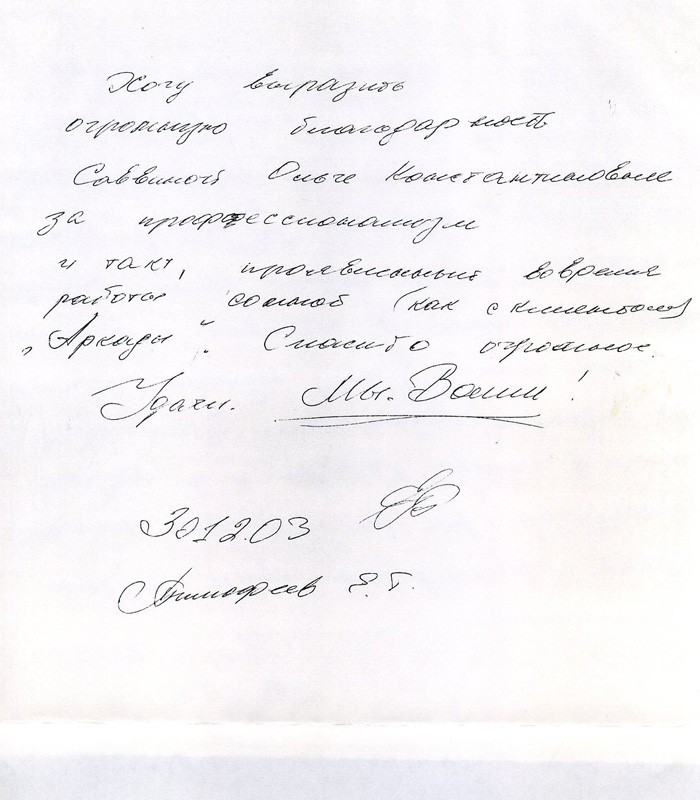 Хочу выразить
огромную благодарность
Саввиной Ольге Константиновне
за профессионализм
и такт, проявленный во время
работы со мной (как с клиентом)
„Аркады“. Спасибо огромное.
Удачи. Мы. Ваши!
30.12.03
Тимофеев Е.Г.